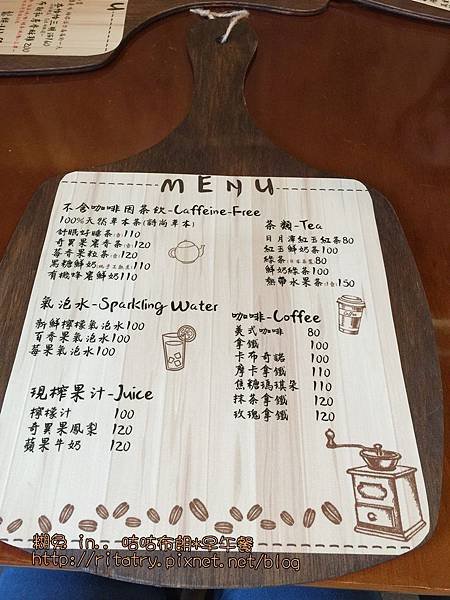 MENU
不含咖啡因茶飲-Caffeine-Free
100%天然草本茶(詩尚草本)
舒眠好睡茶(壺)110
奇異果蜜香茶(壺)120
莓香果粒茶(壺)120
黑糖鮮奶(純手工熬煮)110
有機蜂蜜鮮奶110
茶類-Tea
日月潭紅玉紅茶80
紅玉鮮奶茶100
綠茶80
鮮奶綠茶100
熱帶水果茶(壺)150
氣泡水-Sparkling Water
新鮮檸檬氣泡水100
百香果氣泡水100
莓果氣泡水100
咖啡-Coffee
美式咖啡 80
拿鐵 100
卡布奇諾 100
摩卡拿鐵 110
焦糖瑪琪朵 110
抹茶拿鐵 120
玫瑰拿鐵 120
現榨果汁-Juice
檸檬汁 100
奇異果鳳梨 120
蘋果牛奶 120
懶兔 in.. 咕咕布朗*早午餐
http://ritatry.pixnet.net/blog